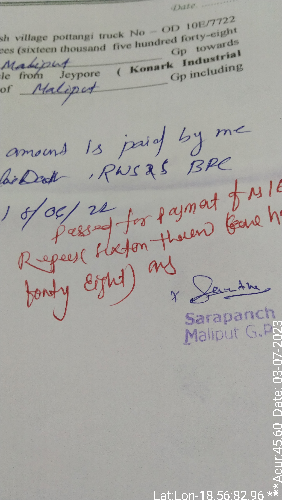 Date
sh village pottangi truck No – OD 10E/7722
ees (sixteen thousand five hundred forty-eight
Maliput Gp towards
le from Jeypore ( Konark Industrial
of Maliput Gp including
amount Is paid by me
RWS&S BPC
Passed for Payment of
Rupees
fourty Eight)
Sarapanch
Maliput G.P
Lat:Lon-18.56:82.96 *** Acur:45.60 Date: 03-07-2023